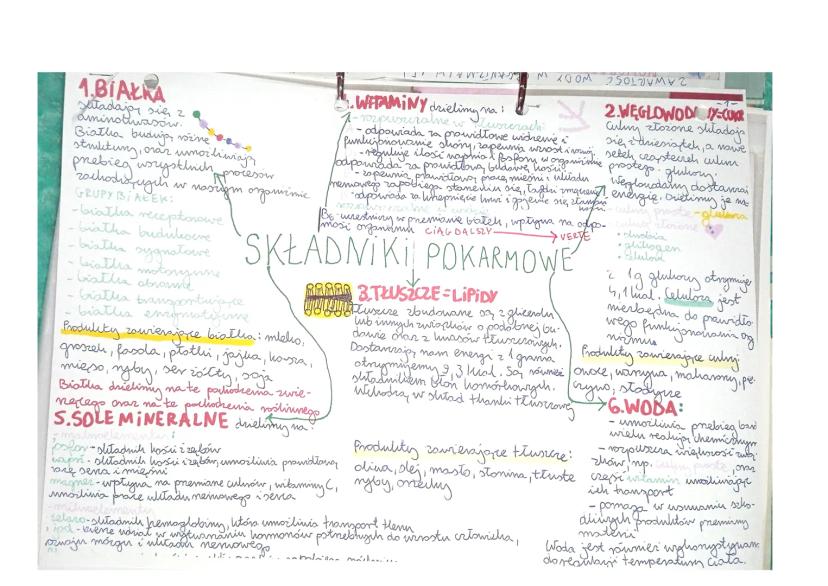 ZAWARTOŚĆ WODY W
1.BIAŁKA
składają się z
aminokwasów.
Białka budują różne
struktury, oraz umożliwiają
przebieg wszystkich procesów
zachodzących w naszym organizmie
GRUPY BIAŁEK:
- białka receptorowe
- białka budulcowe
- białka sygnałowe
- białka motoryczne
- białka obronne
- białka transportujące
- białka enzymatyczne
Produkty zawierające białka: mleko,
groszek, fasola, płatki, jajka, kasza,
mięso, ryby, ser żółty, soja
Białka dzielimy na te pochodzenia zwie-
rzęcego oraz na te pochodzenia roślinnego
WITAMINY dzielimy na:
- rozpuszczalne w tłuszczach
- odpowiada za prawidłowe widzenie i
funkcjonowanie skóry, zapewnia wzrost i rozwój
- reguluje ilość wapnia i fosforu w organizmie
odpowiada za prawidłową budowę kości
- zapewnia prawidłową pracę mięśni i układu
nerwowego zapobiega
- odpowiada za krzepnięcie krwi i gojenie się
B6 - uczestniczy w przemianie białek, wpływa na odpo-
rność organizmu CIĄG DALSZY VERTE
2.WĘGLOWODANY=CUKRY
-1-
Cukry złożone składają
się z dziesiątek, a nawet
setek cząsteczek cukru
prostego - glukozy.
Węglowodany dostarczają
energię. Dzielimy je na:
- cukry proste - glukoza
- cukry złożone
• skrobia
• glikogen
• celuloza
z 1g glukozy otrzymuje
4,1 kcal. Celuloza jest
niezbędna do prawidło-
wego funkcjonowania org
nizmu
Produkty zawierające cukry:
owoce, warzywa, makarony, pie
czywo, słodycze
SKŁADNIKI POKARMOWE
3.TŁUSZCZE=LIPIDY
Tłuszcze zbudowane są z glicerolu
lub innych związków o podobnej bu-
dowie oraz z kwasów tłuszczowych.
Dostarczają nam energi z 1 grama
otrzymujemy 9,3 kcal. Są również
składnikiem błon komórkowych.
Wchodzą w skład tkanki tłuszczowej
Produkty zawierające tłuszcze:
oliwa, olej, masło, słonina, tłuste
ryby, orzechy
5.SOLE MINERALNE dzielimy na:
- makroelementy:
fosfor - składnik kości i zębów
wapń - składnik kości i zębów, umożliwia prawidłową
pracę serca i mięśni
magnez - wpływa na przemianę cukrów, witaminy C,
umożliwia pracę układu nerwowego i serca
- mikroelementy
żelazo - składnik hemoglobiny, która umożliwia transport tlenu
jod - bierze udział w wytwarzaniu hormonów potrzebnych do wzrostu człowieka,
rozwoju mózgu i układu nerwowego
6.WODA:
- umożliwia przebieg bar
wielu reakcji chemicznym
- rozpuszcza większość zwią
zków, np. cukry proste, oraz
część witamin umożliwiając
ich transport
- pomaga w usuwaniu szko-
dliwych produktów przemiany
materii
Woda jest również wykorzystywana
do regulacji temperatury ciała.